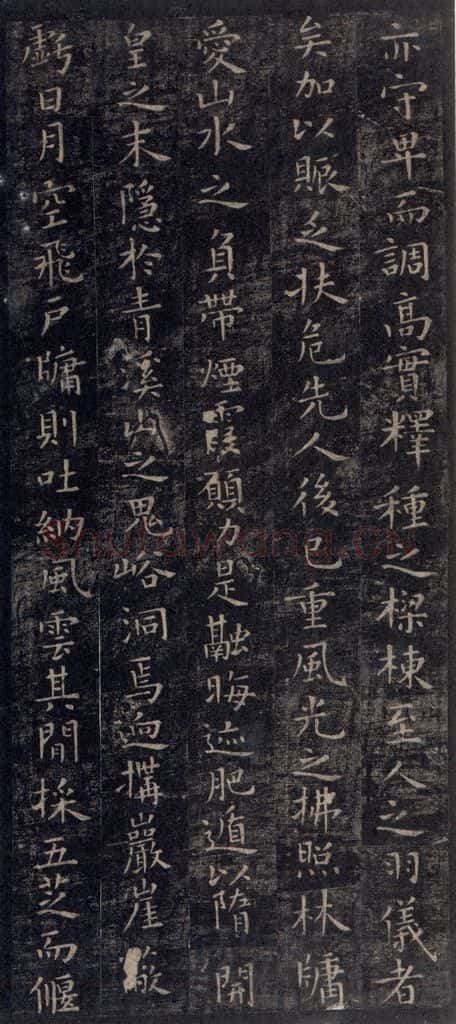 亦守卑而調高實釋種之樑棟至人之羽儀者
矣加以賑乏扶危先人後己重風光之拂照林牖
愛山水之負帶煙霞願力是融晦迹肥遁以隋開
皇之末隱於青溪山之鬼峪洞焉迺搆巖崖蔽
虧日月空飛戶牖則吐納風雲其閒採五芝而偃
shufawang.cn